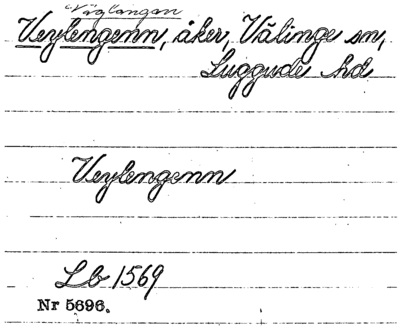 Väglangan
Veylengenn, åker, Välinge sn,
Luggude hd
Veylengenn
Lb 1569
Nr 5696.